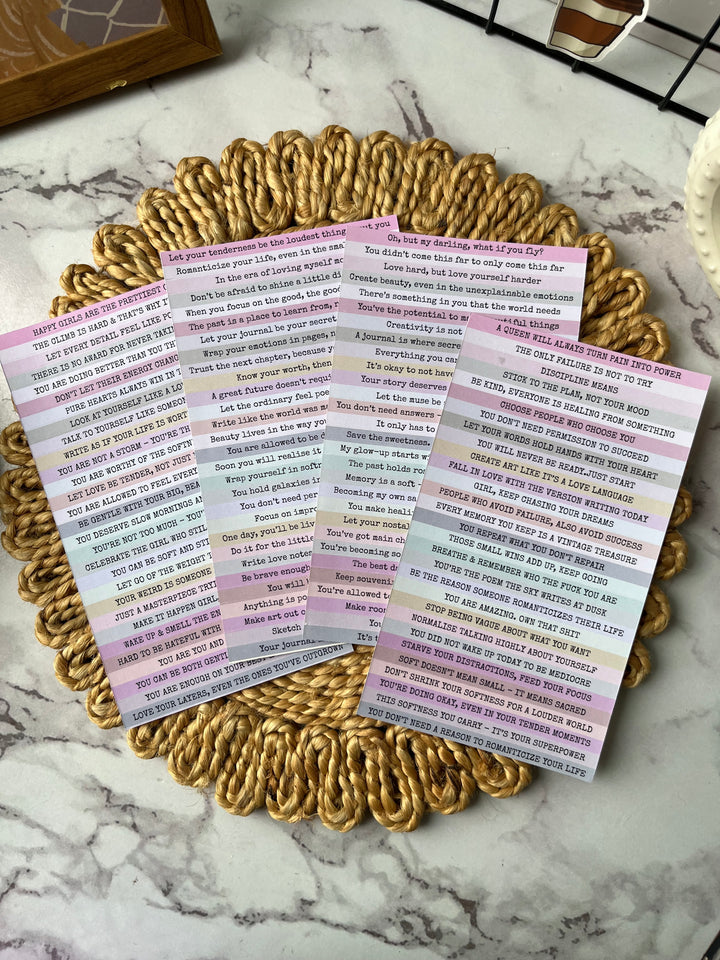 HAPPY GIRLS ARE THE PRETTIEST
THE CLIMB IS HARD & THAT'S WHY
LET EVERY DETAIL FEEL LIKE
THERE IS NO AWARD FOR NEVER
YOU ARE DOING BETTER THAN YOU
DON'T LET THEIR ENERGY
PURE HEARTS ALWAYS WIN IN
LOOK AT YOURSELF LIKE A
TALK TO YOURSELF LIKE
WRITE AS IF YOUR LIFE IS
YOU ARE NOT A STORM – YOU'RE
YOU ARE WORTHY OF THE
LET LOVE BE TENDER, NOT JUST
YOU ARE ALLOWED TO FEEL
BE GENTLE WITH YOUR BIG,
YOU DESERVE SLOW MORNINGS
YOU'RE NOT TOO MUCH –
CELEBRATE THE GIRL WHO
YOU CAN BE SOFT AND
LET GO OF THE WEIGHT
YOUR WEIRD IS SOMEONE
JUST A MASTERPIECE
MAKE IT HAPPEN
WAKE UP & SMELL THE
HARD TO BE HATEFUL WITH
YOU ARE YOU AND
YOU CAN BE BOTH
YOU ARE ENOUGH ON YOUR
LOVE YOUR LAYERS, EVEN THE ONES YOU'VE OUTGROWN
Let your tenderness be the loudest thing about you
Romanticize your life, even in the
In the era of loving myself
Don't be afraid to shine a little
When you focus on the good, the
The past is a place to learn from,
Let your journal be your
Wrap your emotions in pages,
Trust the next chapter, because
Know your worth,
A great future doesn't
Let the ordinary feel
Write like the world was
Beauty lives in the way
You are allowed to be
Soon you will realise
Wrap yourself in
You hold galaxies
You don't need
Focus on
One day, you'll be
Do it for the
Write love notes
Be brave enough
You will
Anything is
Make art out
Sketch
Your journal
Oh, but my darling, what if you fly?
You didn't come this far to only come this far
Love hard, but love yourself harder
Create beauty, even in the unexplainable emotions
There's something in you that the world needs
You've the potential to beautiful things
Creativity is not
A journal is where
Everything you
It's okay to not
Your story deserves
Let the muse be
You don't need answers –
It only has to
Save the sweetness.
My glow-up starts
The past holds
Memory is a soft
Becoming my own
You make
Let your
You've got main
You're becoming
The best
Keep
You're allowed
Make
You
It's
A QUEEN WILL ALWAYS TURN PAIN INTO POWER
THE ONLY FAILURE IS NOT TO TRY
DISCIPLINE MEANS
STICK TO THE PLAN, NOT YOUR MOOD
BE KIND, EVERYONE IS HEALING FROM SOMETHING
CHOOSE PEOPLE WHO CHOOSE YOU
YOU DON'T NEED PERMISSION TO SUCCEED
LET YOUR WORDS HOLD HANDS WITH YOUR HEART
YOU WILL NEVER BE READY.JUST START
CREATE ART LIKE IT'S A LOVE LANGUAGE
FALL IN LOVE WITH THE VERSION WRITING TODAY
GIRL, KEEP CHASING YOUR DREAMS
PEOPLE WHO AVOID FAILURE, ALSO AVOID SUCCESS
EVERY MEMORY YOU KEEP IS A VINTAGE TREASURE
YOU REPEAT WHAT YOU DON'T REPAIR
THOSE SMALL WINS ADD UP, KEEP GOING
BREATHE & REMEMBER WHO THE FUCK YOU ARE
YOU'RE THE POEM THE SKY WRITES AT DUSK
BE THE REASON SOMEONE ROMANTICIZES THEIR LIFE
YOU ARE AMAZING. OWN THAT SHIT
STOP BEING VAGUE ABOUT WHAT YOU WANT
NORMALISE TALKING HIGHLY ABOUT YOURSELF
YOU DID NOT WAKE UP TODAY TO BE MEDIOCRE
STARVE YOUR DISTRACTIONS, FEED YOUR FOCUS
SOFT DOESN'T MEAN SMALL – IT MEANS SACRED
DON'T SHRINK YOUR SOFTNESS FOR A LOUDER WORLD
YOU'RE DOING OKAY, EVEN IN YOUR TENDER MOMENTS
THIS SOFTNESS YOU CARRY – IT'S YOUR SUPERPOWER
YOU DON'T NEED A REASON TO ROMANTICIZE YOUR LIFE